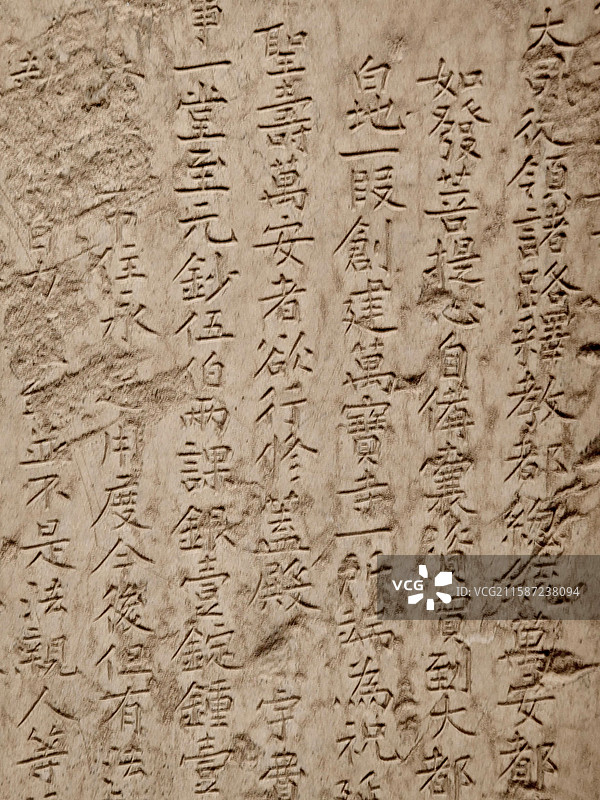 大司徒領諸路釋教都總統萬安都
如發菩提心自備囊資到大都
白地一段創建萬寶寺一所端為祝延
聖壽萬安者欲行修蓋殿宇書
事一堂至元鈔伍伯兩課銀壹錠鍾壹
住永用度今後但有法
自力並不是法親人等
VCG
ID: VCG211587238094